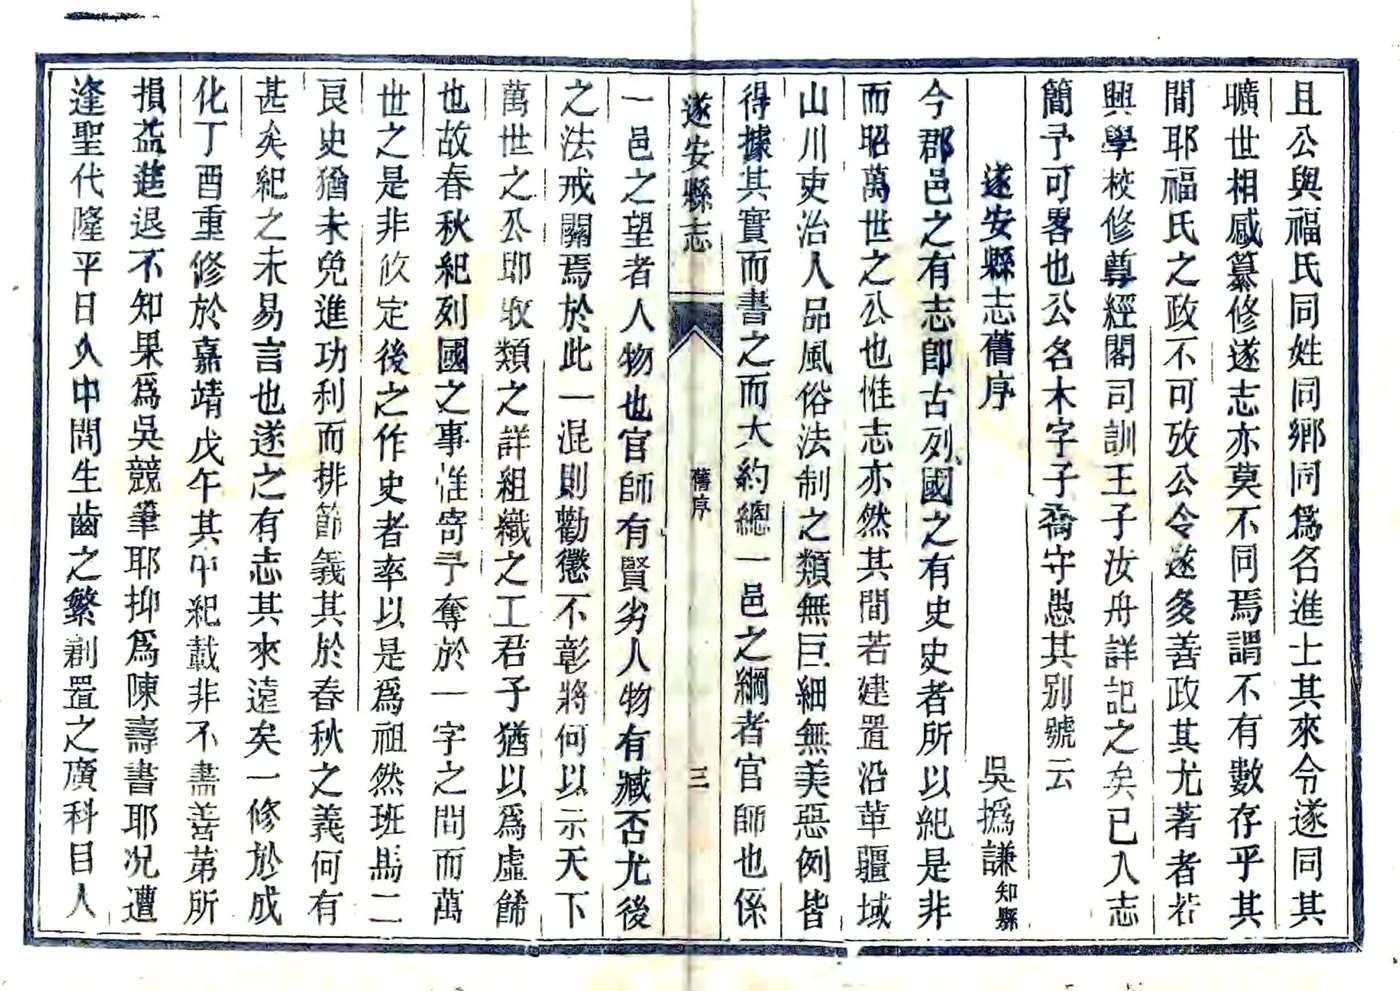 且公與福氏同姓同鄉同爲名進士其來令遂同其
曠世相感纂修遂志亦莫不同焉謂不有數存乎其
間耶福氏之政不可攷公令遂多善政其尤著者若
興學校修尊經閣司訓王子汝舟詳記之矣已入志
簡予可畧也公名木字子喬守愚其別號云
遂安縣志舊序
吳撝謙知縣
今郡邑之有志卽古列國之有史史者所以紀是非
而昭萬世之公也惟志亦然其間若建置沿革疆域
山川吏治人品風俗法制之類無巨細無美惡例皆
得據其實而書之而大約總一邑之綱者官師也係
遂安縣志
舊序
三
一邑之望者人物也官師有賢劣人物有臧否尤後
之法戒關焉於此一混則勸懲不彰將何以示天下
萬世之公卽收類之詳組織之工君子猶以爲虛餙
也故春秋紀列國之事惟寄予奪於一字之間而萬
世之是非攸定後之作史者率以是爲祖然班馬二
良史猶未免進功利而排節義其於春秋之義何有
甚矣紀之未易言也遂之有志其來遠矣一修於成
化丁酉重修於嘉靖戊午其中紀載非不盡善第所
損益進退不知果爲吳競筆耶抑爲陳壽書耶况遭
逢聖代隆平日久中間生齒之繁創置之廣科目人